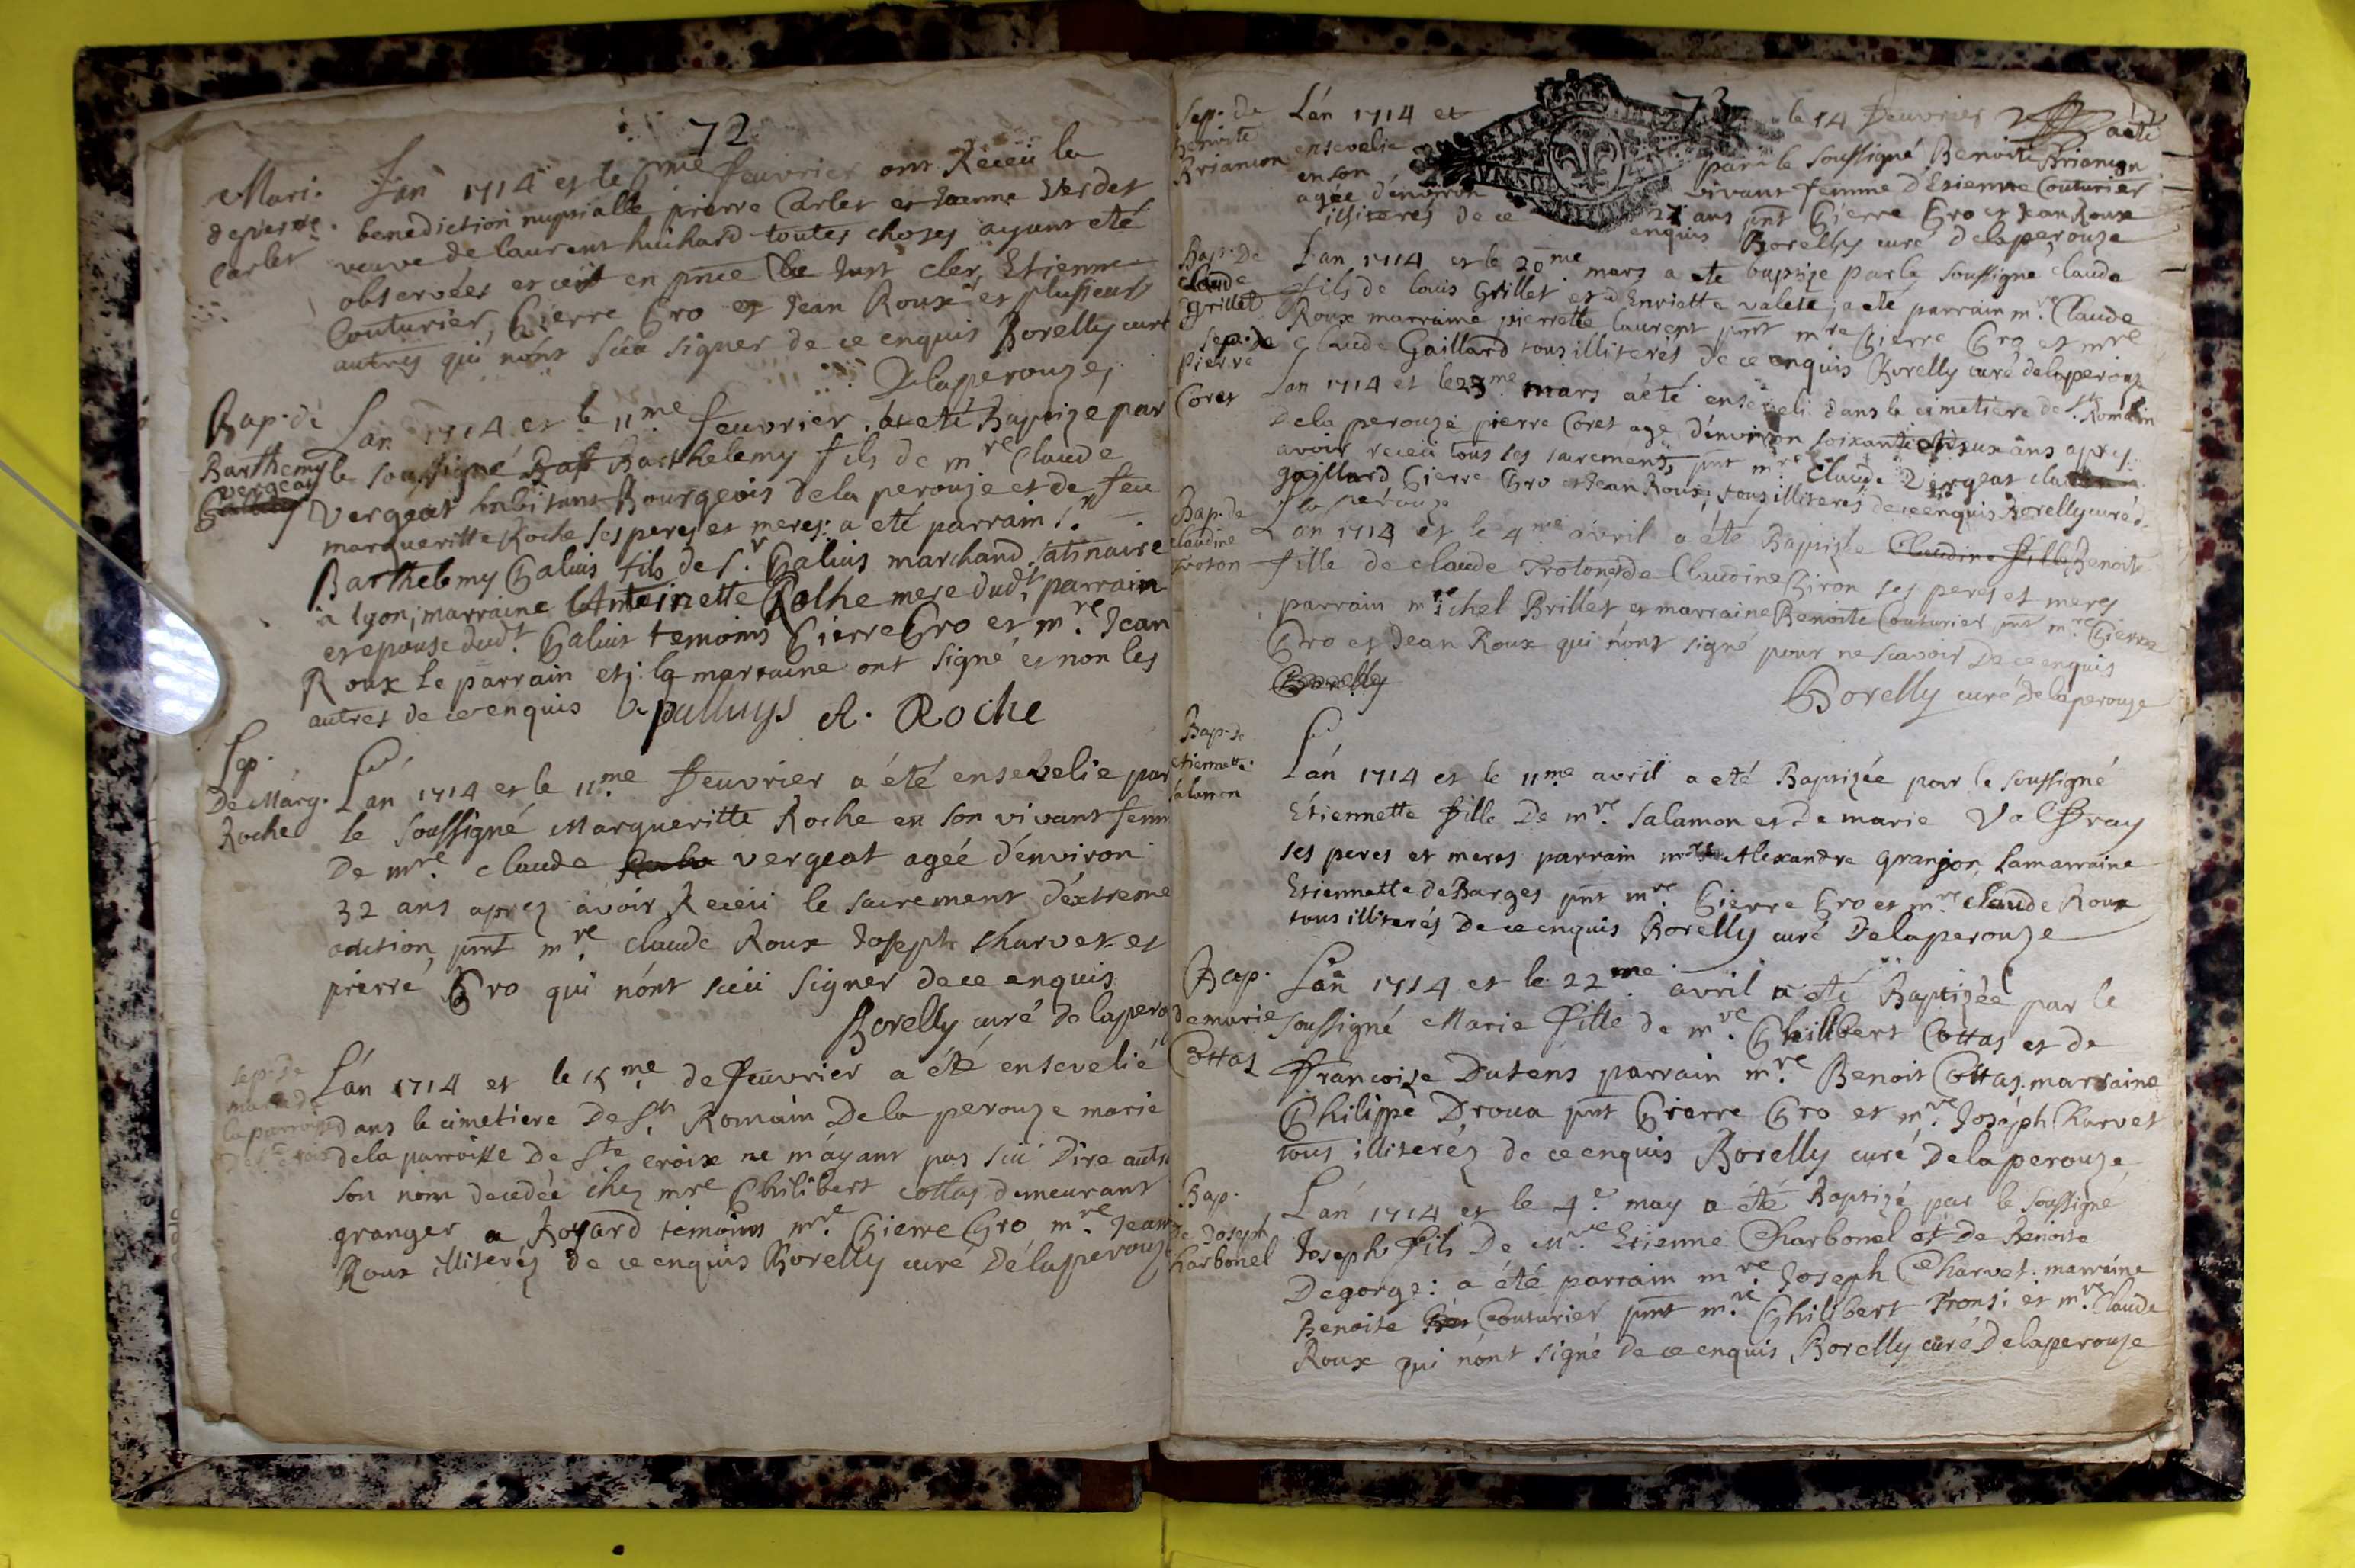 72
Mari.
de pierre
Carlet
Lan 1714 et le 6me feuvrier ont Receü la
benediction nuptialle pierre Carlet et Jeanne Verdet
veuve de laurent huchard toutes choses ayant eté
observées et ce en pnce Just cler, Etienne
Couturier, Pierre Gro et Jean Roux et plusieurs
autres qui n'ont sceu signer de ce enquis Borelly curé
Delaperouze,
Bap. de
Barthemy
vergeat
Lan 1714 et le 11me feuvrier a eté Baptizé par
le soussigné Barthelemy fils de mre Claude
Vergeat habitant Bourgeois dela perouze et de feu
margueritte Roche ses peres et meres: a eté parrain sr
Barthelemy Paluis fils de Sr. Paluis marchand satinaire
a lyon; marraine Antoinette Rolhe mere dudt parrain
et epouse dudt. Paluis temoins Pierre Gro et mre Jean
Roux Le parrain et la marraine ont signé et non les
autres de ce enquis B palluys A. Roche
Sep.
De Marg.
Roche
L'an 1714 et le 11.me feuvrier a été ensevelie par
le soussigné Margueritte Roche en son vivant fem
De mre. claude vergeat ageé d'environ
32 ans aprez avoir Receü le sacrement d'extreme
onction, pnt mre claude Roux Joseph Charvet et
pierre Gro qui n'ont sceü signer de ce enquis
Borelly curé de lapero
Sep. de
marie de
la parroisse
L'an 1714 et le 15me de feuvrier a été ensevelié
dans le cimetiere De St. Romain De la perouze marie
de la parroisse De Ste croix ne m'ayant pas sceü Dire autre
son nom decedée chez mre Philibert cottas demeurant
granger a Royard témoins mre. Pierre Gro mre Jean
Roux illiterés de ce enquis Borelly curé Délaperouze
73
Sep. de
Benoite
Briancon
L'an 1714 et le 14 feuvrier a eté
ensevelie par le soussigné Benoite Briancon
en son vivant femme d'Etienne Couturier
agée d'environ 27 ans pnt Pierre Gro et Jean Roux
illiteres de ce enquis Borelly curé delaperouze
Bap. De
claude
Grillet
L'an 1714 et le 20me mars a eté baptize par le soussigné claude
fils de louis Grillet et d'Enriette valete; a eté parrain mre. Claude
Roux marraine pierrette laurent pnt mre Pierre Gro et mre
Claude Gaillard tous illiterés de ce enquis Borelly curé delaperouze
Sep. de
Pierre
Coret
Lan 1714 et le 23me mars a eté enseveli dans le cimetiere de St. Romain
De la perouze pierre Coret agé d'environ soixante et deux ans apres
avoir receü tous ses sacrements pnt mre Claude Vergeat
gaillard Pierre Gro et Jean Roux, tous illiterés de ce enquis Borelly curé de
la perouze
Bap. de
claudine
Troton
L'an 1714 et le 4me avril a été Baptizée Claudine fille Benoite
fille de claude Troton et de Claudine Giron ses peres et meres
parrain michel Brillet et marraine Benoite Couturier pnt mre. Pierre
Gro et Jean Roux qui n'ont signé pour ne scavoir De ce enquis
Borelly
Borelly curé De laperouze
Bap. de
etiennette
salamon
L'an 1714 et le 11me avril a eté Baptizée par le soussigné
Etiennette fille De mre. salamon et de marie Valfray
ses peres et meres parrain mre Alexandre Granjon, Lamarraine
Etiennette de Barges pnt mre. Pierre Gro et mre claude Roux
tous illiterés De ce enquis Borelly curé Delaperouze
Bap.
de marie
Cottas
Lan 1714 et le 22me. avril a eté Baptizée par le
soussigné Marie fille de mre. Philibert Cottas et de
francoise Dutens parrain mre. Benoit Cottas marraine
Philippe Droua pnt Pierre Gro et mre. Joseph Charvet
tous illiterez de ce enquis Borelly curé Delaperouze
Bap.
de Joseph
Charbonel
L'an 1714 et le 4e. may a été Baptizé par le soussigné
Joseph fils De mre. Etienne Charbonel et De Benoite
Degorge: a été parrain mre. Joseph Charvet. marraine
Benoite Couturier pnt mre. Philibert Tronsi et mre. Claude
Roux qui n'ont signé De ce enquis, Borelly curé Delaperouze